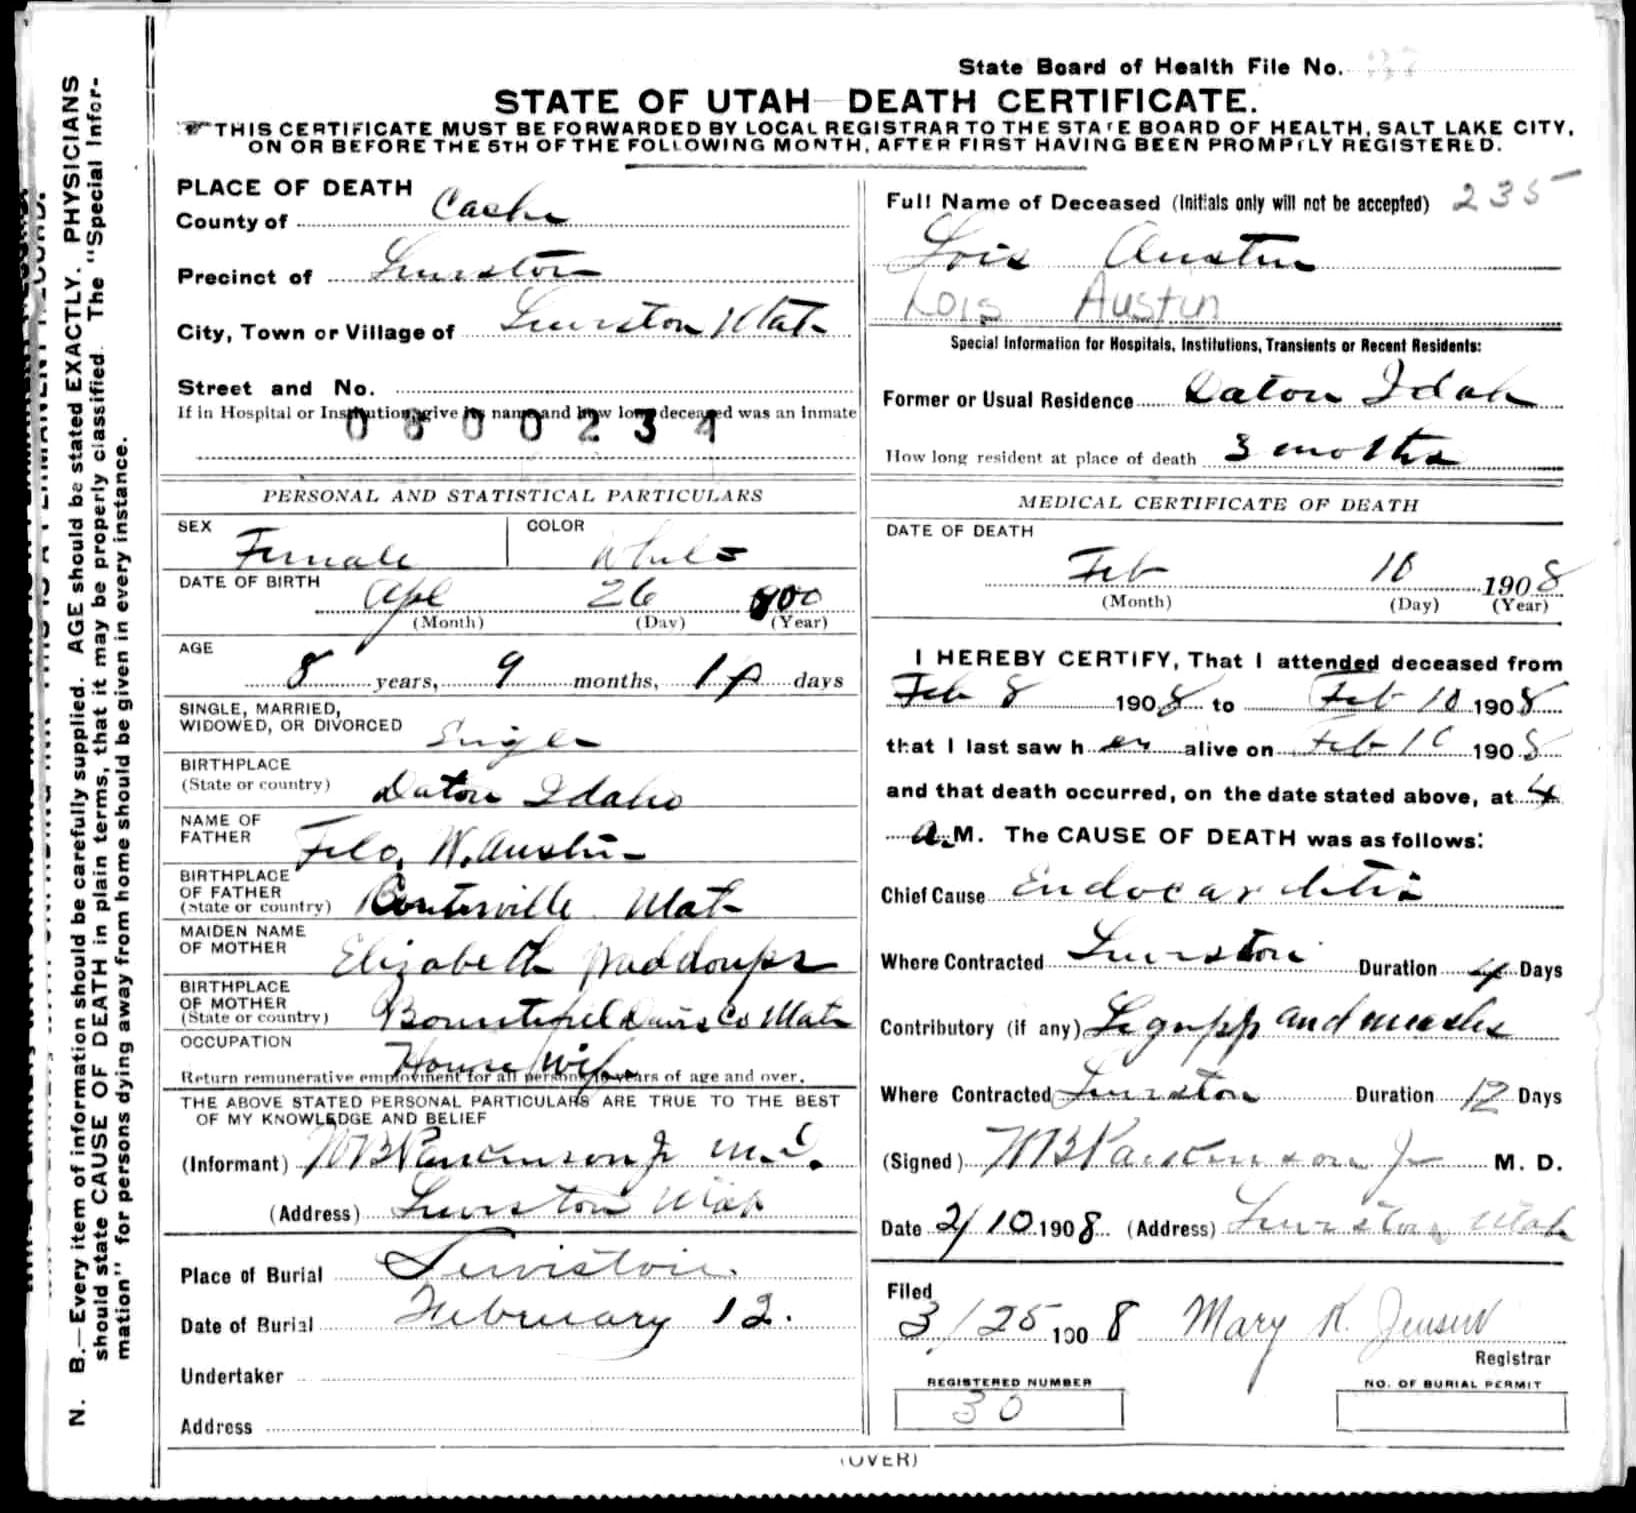 State Board of Health File No.
STATE OF UTAH—DEATH CERTIFICATE.
☞THIS CERTIFICATE MUST BE FORWARDED BY LOCAL REGISTRAR TO THE STATE BOARD OF HEALTH, SALT LAKE CITY,
ON OR BEFORE THE 5TH OF THE FOLLOWING MONTH, AFTER FIRST HAVING BEEN PROMPTLY REGISTERED.
N. B.—Every item of information should be carefully supplied. AGE should be stated EXACTLY. PHYSICIANS
should state CAUSE OF DEATH in plain terms, that it may be properly classified. The "Special Infor-
mation" for persons dying away from home should be given in every instance.
PLACE OF DEATH
County of Cache
Precinct of Lewiston
City, Town or Village of Lewiston Utah
Street and No.
If in Hospital or Institution, give its name and how long deceased was an Inmate
0800234
PERSONAL AND STATISTICAL PARTICULARS
SEX Female COLOR White
DATE OF BIRTH Apl 26 900
(Month) (Day) (Year)
AGE
8 years, 9 months, 14 days
SINGLE, MARRIED,
WIDOWED, OR DIVORCED Single
BIRTHPLACE
(State or country) Daton Idaho
NAME OF
FATHER Filo. W. Austin
BIRTHPLACE
OF FATHER
(State or country) Centerville Utah
MAIDEN NAME
OF MOTHER Elizabeth Maddoups
BIRTHPLACE
OF MOTHER
(State or country) Bountiful Davis Co Utah
OCCUPATION House Wife
Return remunerative employment for all persons 10 years of age and over.
THE ABOVE STATED PERSONAL PARTICULARS ARE TRUE TO THE BEST
OF MY KNOWLEDGE AND BELIEF
(Informant) WB Parkinson Jr M.D.
(Address) Lewiston Utah
Place of Burial Lewiston.
Date of Burial February 12.
Undertaker
Address
Full Name of Deceased (Initials only will not be accepted) 235
Lois Austin
Lois Austin
Special Information for Hospitals, Institutions, Transients or Recent Residents:
Former or Usual Residence Daton Idah
How long resident at place of death 3 months
MEDICAL CERTIFICATE OF DEATH
DATE OF DEATH
Feb 10 1908
(Month) (Day) (Year)
I HEREBY CERTIFY, That I attended deceased from
Feb 8 1908 to Feb 10 1908
that I last saw her alive on Feb 10 1908
and that death occurred, on the date stated above, at 4
A.M. The CAUSE OF DEATH was as follows:
Chief Cause Endocarditis
Where Contracted Lewiston Duration 4 Days
Contributory (if any) Lagripp and measles
Where Contracted Lewiston Duration 12 Days
(Signed) WB Parkinson Jr M. D.
Date 2/10 1908 (Address) Lewiston Utah
Filed
3/25 1908 Mary K. Jensen
Registrar
REGISTERED NUMBER
30
NO. OF BURIAL PERMIT
(OVER)